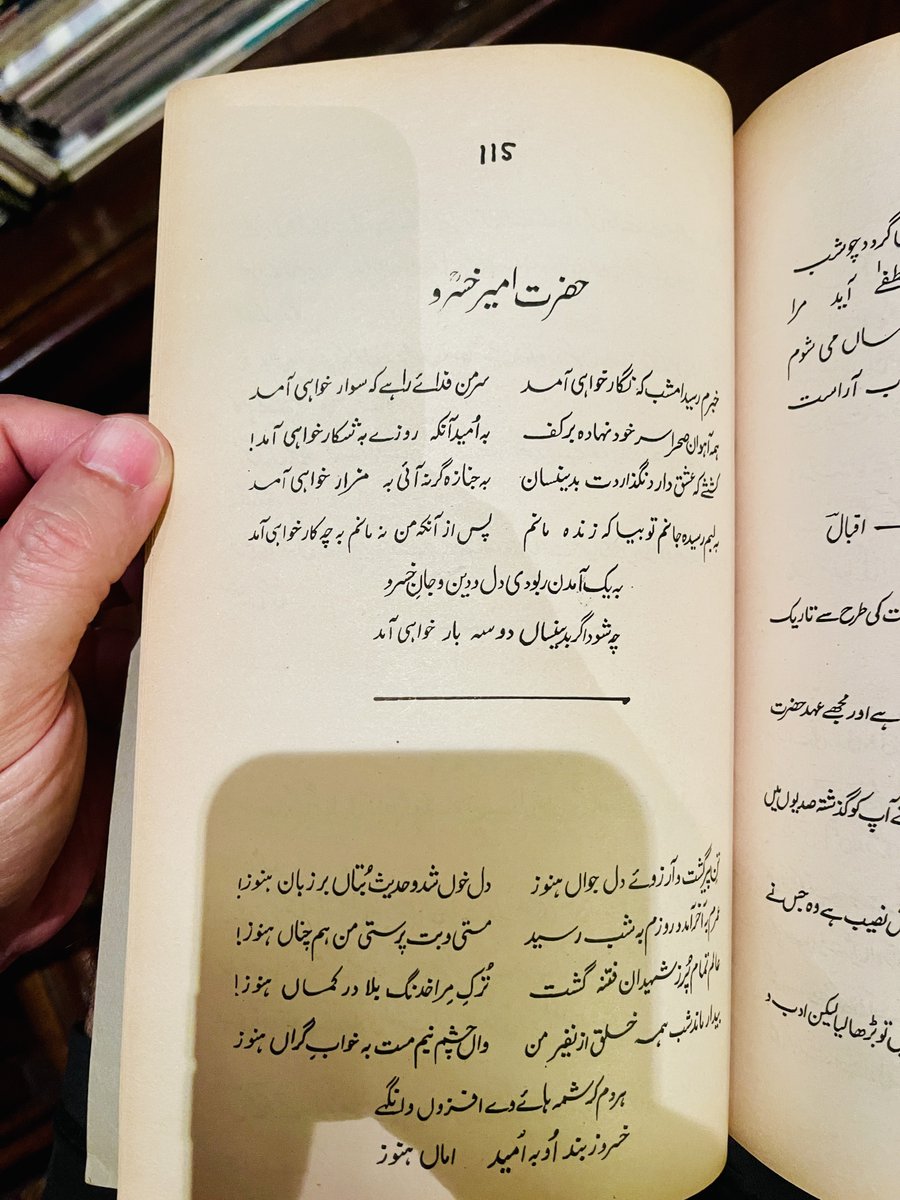 115
حضرت امیر خسروؒ
خبرم رسید امشب کہ نگار خواہی آمد سرِ من فدائے راہے کہ سوار خواہی آمد
ہمہ آہوانِ صحرا سر خود نہادہ بر کف بہ اُمید آنکہ روزے بہ شکار خواہی آمد!
کششے کہ عشق دارد نگذاردت بدینسان بہ جنازہ گر نہ آئی بہ مزار خواہی آمد
بہ لبم رسیدہ جانم تو بیا کہ زندہ مانم پس از آنکہ من نہ مانم بہ چہ کار خواہی آمد
بہ یک آمدن ربودی دل و دین و جانِ خسرو
چہ شود اگر بدینساں دو سہ بار خواہی آمد
پیر گشت و آرزوئے دل جواں ہنوز دل خوں شد و حدیث بُتاں بر زبان ہنوز!
عمرم بہ آخر آمد و روزم بہ شب رسید مستی و بت پرستی من ہم چناں ہنوز!
عالم تمام پُر ز شہیدان فتنہ گشت تُرکِ مرا خدنگ بلا در کماں ہنوز!
بیدار ماند شب ہمہ خلق از نفیر من واں چشم نیم مست بہ خوابِ گراں ہنوز
ہر دم کرشمہ ہائے وے افزوں وانگہے
خسرو ز بند اُو بہ اُمید اماں ہنوز
گردد چو شب
آید مرا
ساں می شوم
آراست
— اقبالؔ
کی طرح سے تاریک
ہے اور مجھے عہد حضرت
آپ کو گذشتہ صدیوں میں
نصیب ہے وہ جس نے
تو بڑھا لیا لیکن ادب و